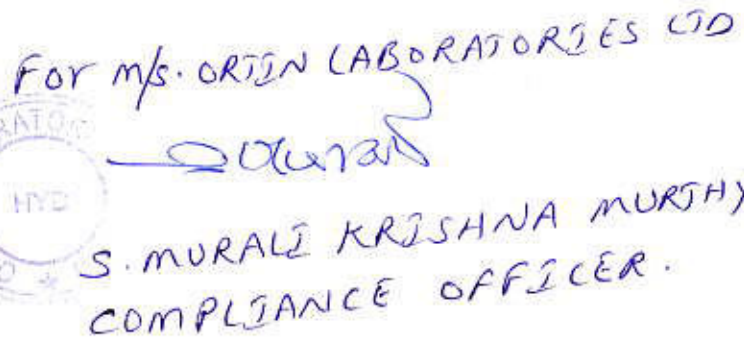 For M/s. ORTIN LABORATORIES LTD
RATO
HYD
S. MURALI KRISHNA MURTHY
COMPLIANCE OFFICER.